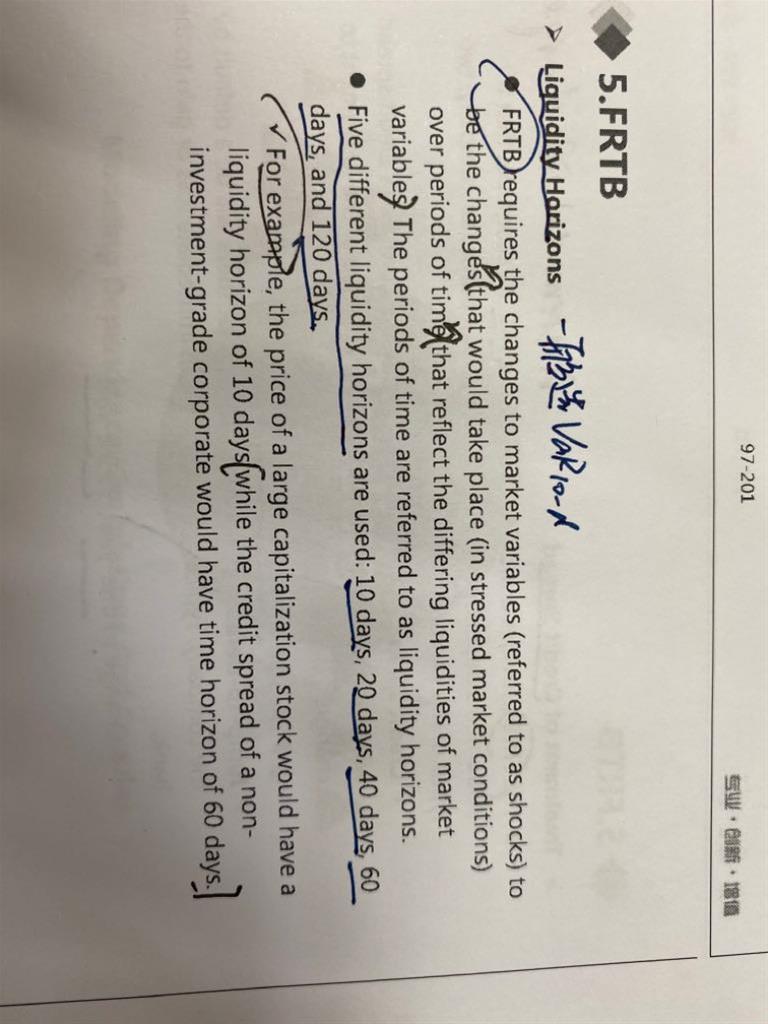 97-201
专业·创新·增值
5.FRTB
➢ Liquidity Horizons VaR 10-d
● FRTB requires the changes to market variables (referred to as shocks) to
be the changes that would take place (in stressed market conditions)
over periods of time that reflect the differing liquidities of market
variables. The periods of time are referred to as liquidity horizons.
● Five different liquidity horizons are used: 10 days, 20 days, 40 days, 60
days, and 120 days.
✓ For example, the price of a large capitalization stock would have a
liquidity horizon of 10 days while the credit spread of a non-
investment-grade corporate would have time horizon of 60 days.